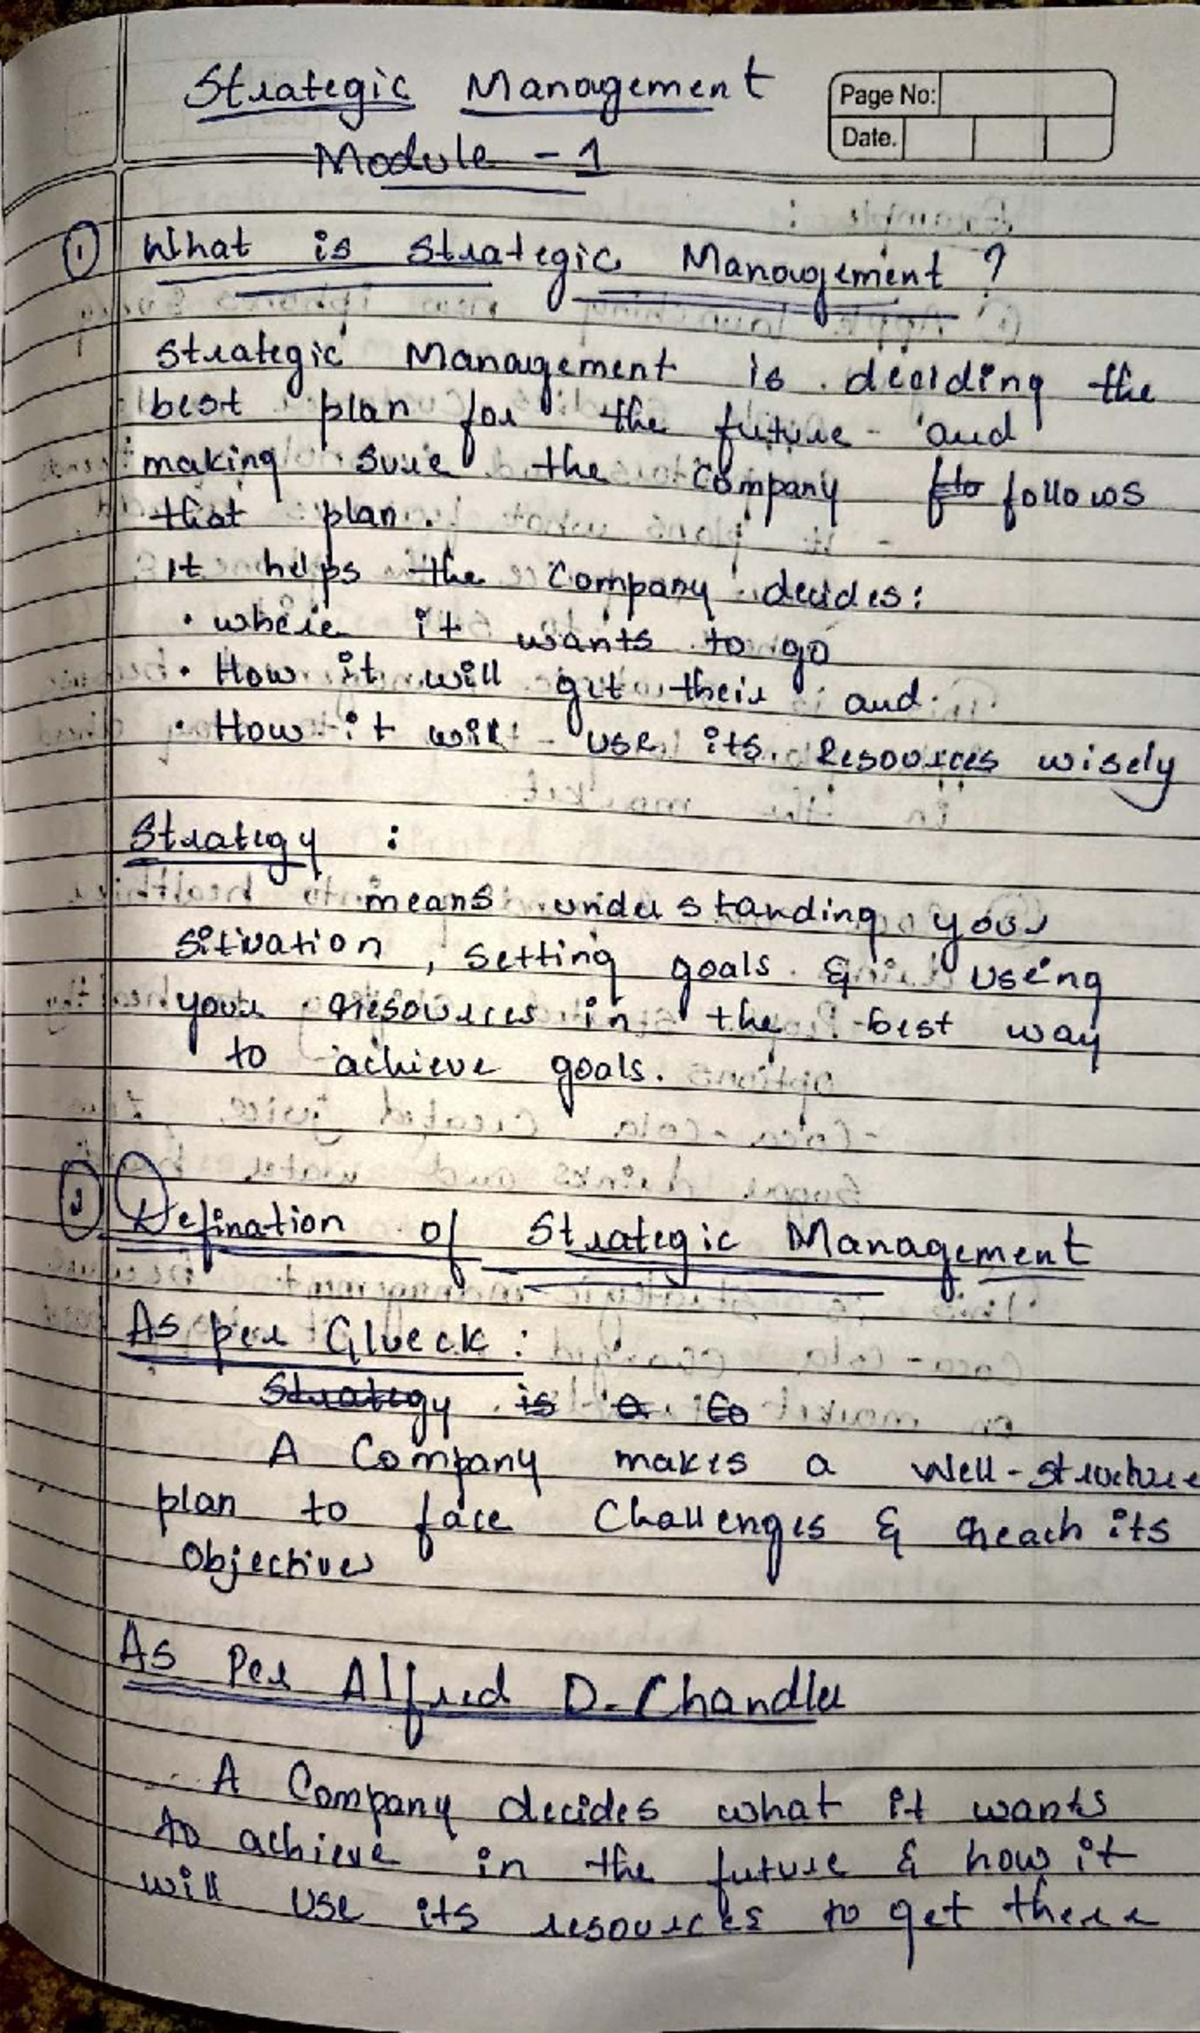 Strategic Management
Page No:
Date.
Module - 1
① What is Strategic Management ?
Strategic Management is deciding the
best plan for the future and
making sure the Company follows
that plan.
It helps the Company decides:
• where it wants to go
• How it will get their and
• How it will use its Resources wisely
Strategy :
means understanding your
Situation, Setting goals & using
your resources in the best way
to achieve goals.
② Defination of Strategic Management
As per Glueck :
Strategy is a Co
A Company makes a Well-Structure
plan to face Challenges & reach its
Objectives
As Per Alfred D. Chandler
A Company decides what it wants
to achieve in the future & how it
will use its resources to get there